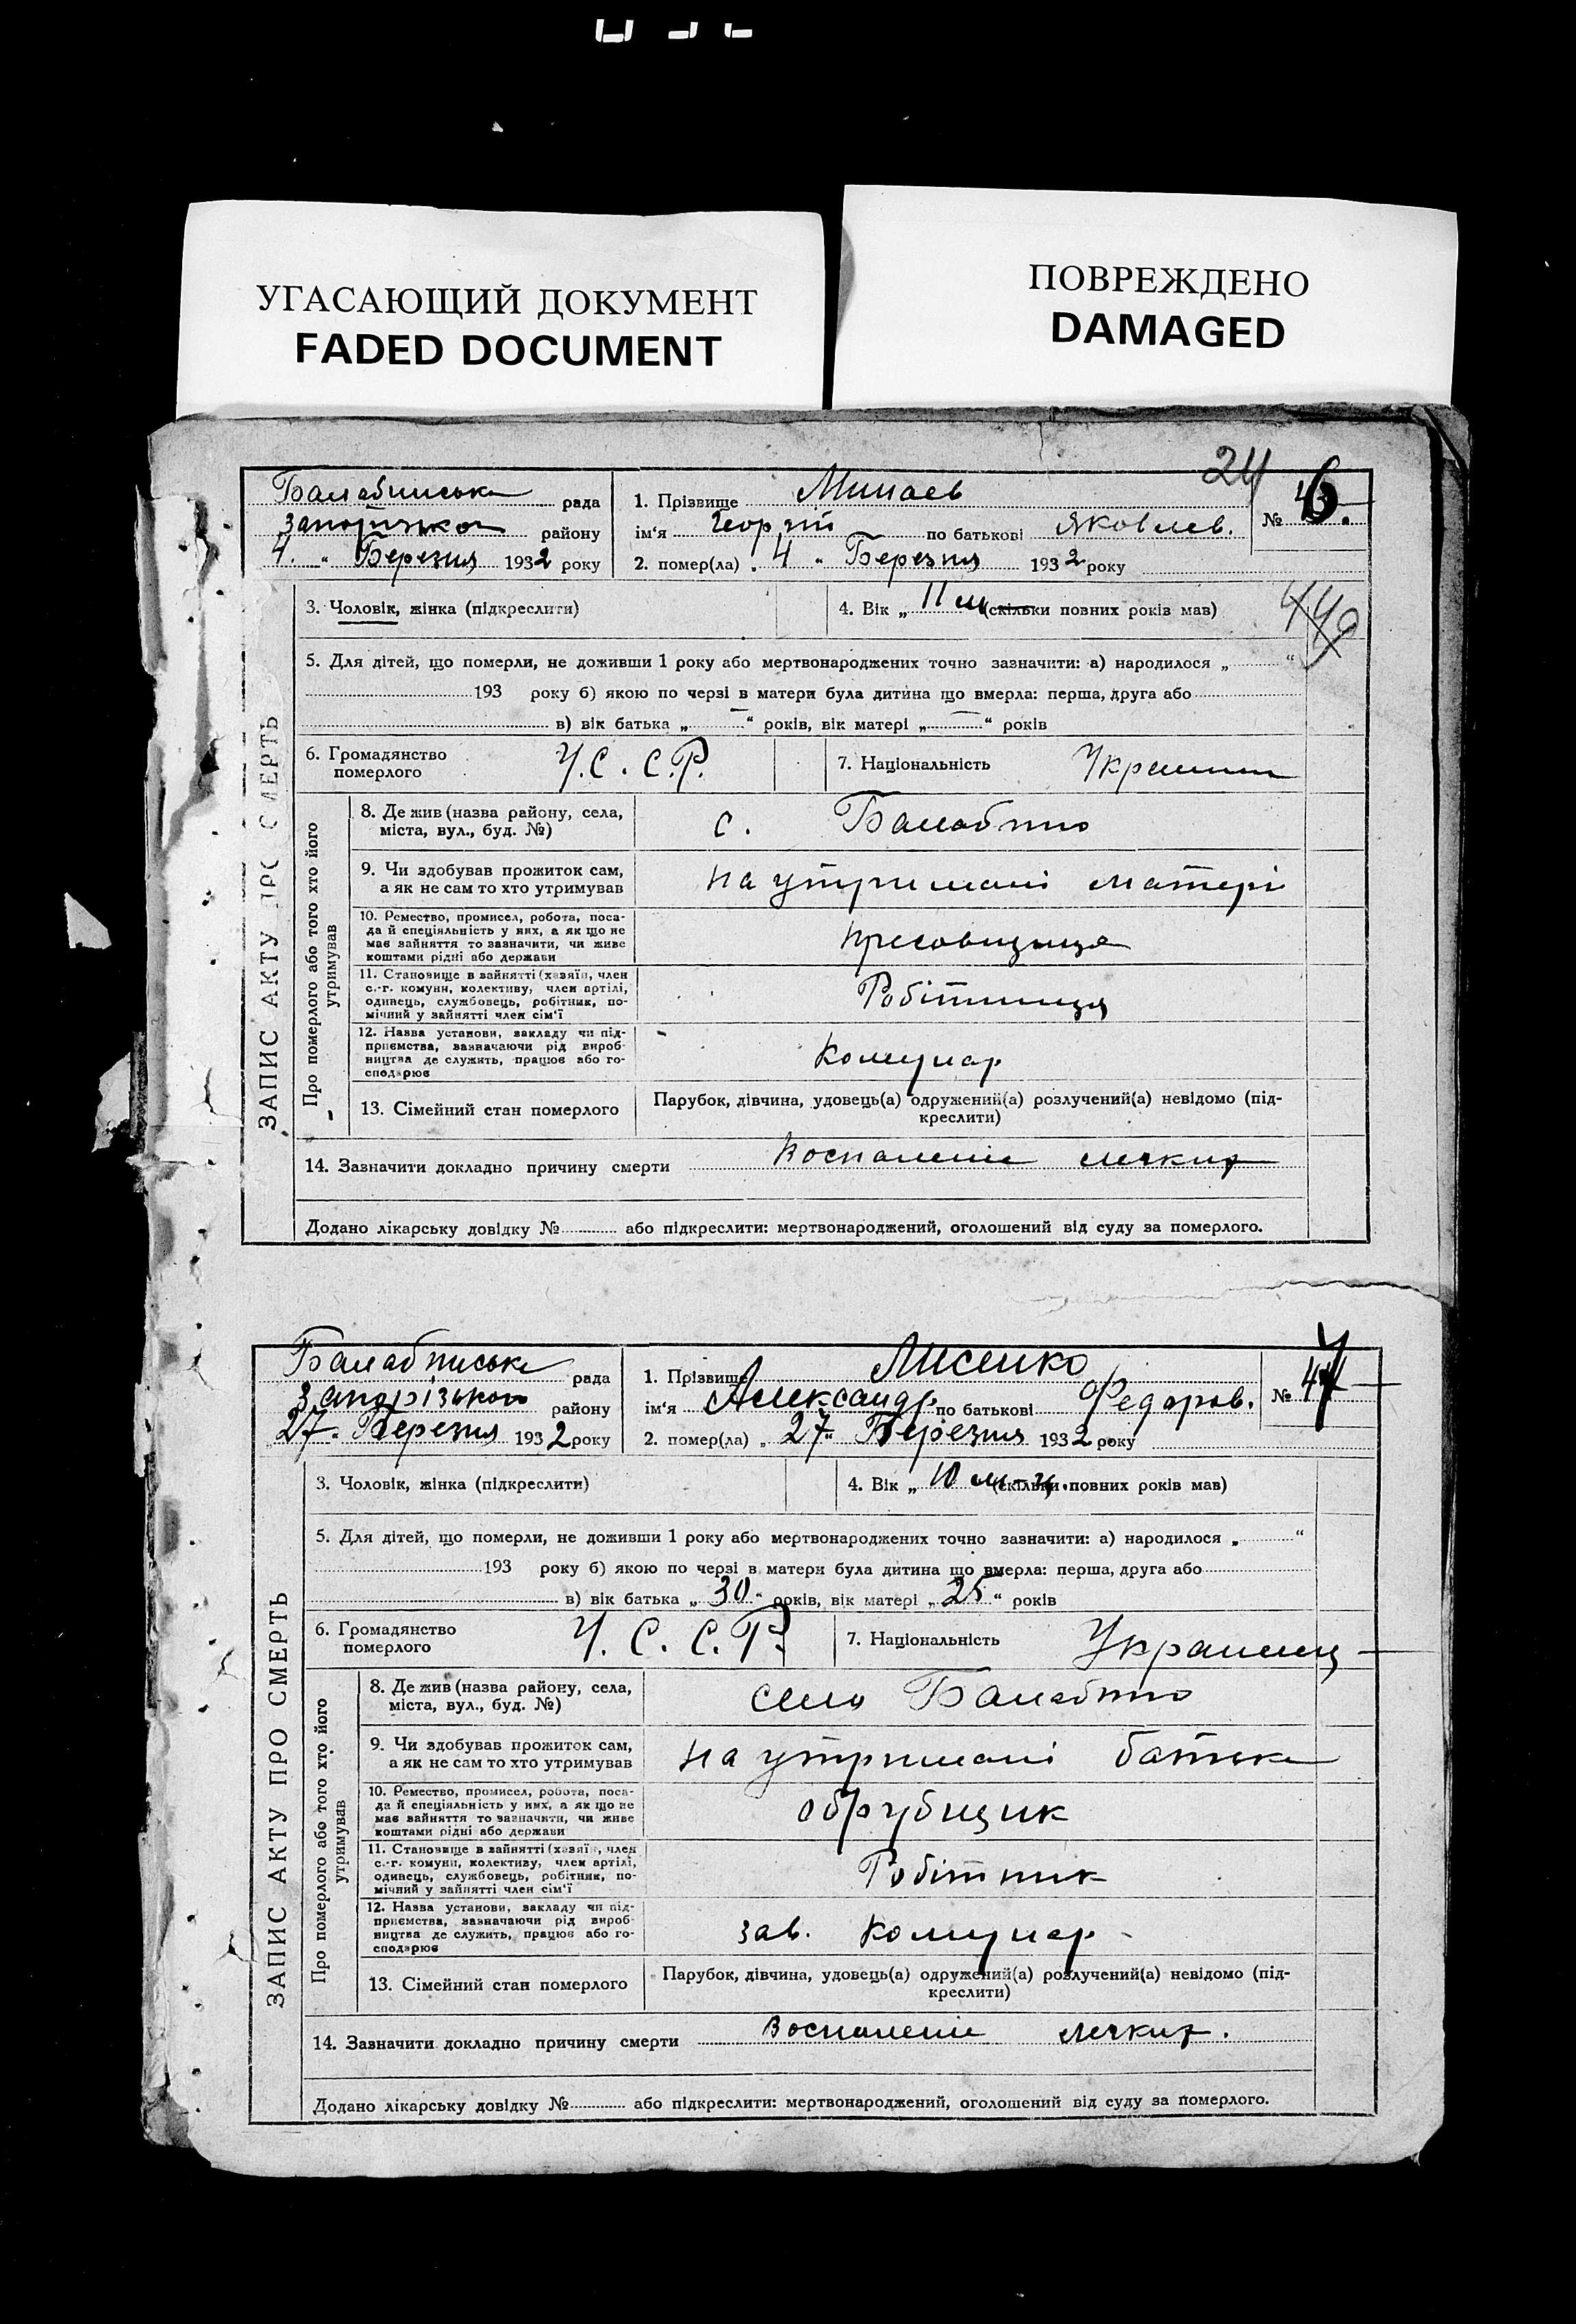 УГАСАЮЩИЙ ДОКУМЕНТ
FADED DOCUMENT
ПОВРЕЖДЕНО
DAMAGED
24
Балабинська рада
Запорізького району
4. " Березня 1932 року
1. Прізвище Минаев
ім'я Георгій по батькові Яковлев.
2. помер(ла) 4 " Березня 1932 року
№ 6.
3. Чоловік, жінка (підкреслити)
4. Вік „ 11 м (скільки повних років мав)
5. Для дітей, що померли, не доживши 1 року або мертвонароджених точно зазначити: а) народилося „ “
193 року б) якою по черзі в матери була дитина що вмерла: перша, друга або
в) вік батька „ — “ років, вік матері „ — “ років
6. Громадянство
померлого
У.С.С.Р.
7. Національність
Украинец
ЗАПИС АКТУ ПРО СМЕРТЬ
Про померлого або того хто його
утримував
8. Де жив (назва району, села,
міста, вул., буд. №)
с. Балабино
9. Чи здобував прожиток сам,
а як не сам то хто утримував
на утримані матері
10. Ремество, промисел, робота, поса-
да й спеціяльність у них, а як що не
має зайняття то зазначити, чи живе
коштами рідні або держави
пресовщица
11. Становище в зайнятті (хазяїн, член
с.-г. комуни, колективу, член артілі,
одинець, службовець, робітник, по-
мічний у зайнятті член сім'ї
Робітниця
12. Назва установи, закладу чи під-
приємства, зазначаючи рід вироб-
ництва де служить, працює або го-
сподарює
Комунар
13. Сімейний стан померлого
Парубок, дівчина, удовець(а) одружений(а) розлучений(а) невідомо (під-
креслити)
14. Зазначити докладно причину смерти Воспаленіе легких
Додано лікарську довідку № або підкреслити: мертвонароджений, оголошений від суду за померлого.
Балабинська рада
Запорізького району
27. Березня 1932 року
1. Прізвище Лисенко
ім'я Александр по батькові Федоров.
2. помер(ла) „ 27 “ Березня 1932 року
№ 47
3. Чоловік, жінка (підкреслити)
4. Вік „ 10 м-ц. (скільки повних років мав)
5. Для дітей, що померли, не доживши 1 року або мертвонароджених точно зазначити: а) народилося „ “
193 року б) якою по черзі в матери була дитина що вмерла: перша, друга або
в) вік батька „ 30 “ років, вік матері „ 25 “ років
6. Громадянство
померлого
У.С.С.Р.
7. Національність
Украинец
ЗАПИС АКТУ ПРО СМЕРТЬ
Про померлого або того хто його
утримував
8. Де жив (назва району, села,
міста, вул., буд. №)
село Балабино
9. Чи здобував прожиток сам,
а як не сам то хто утримував
на утримані батька
10. Ремество, промисел, робота, поса-
да й спеціяльність у них, а як що не
має зайняття то зазначити, чи живе
коштами рідні або держави
обрубщик
11. Становище в зайнятті (хазяїн, член
с.-г. комуни, колективу, член артілі,
одинець, службовець, робітник, по-
мічний у зайнятті член сім'ї
Робітник
12. Назва установи, закладу чи під-
приємства, зазначаючи рід вироб-
ництва де служить, працює або го-
сподарює
зав. Комунар
13. Сімейний стан померлого
Парубок, дівчина, удовець(а) одружений(а) розлучений(а) невідомо (під-
креслити)
14. Зазначити докладно причину смерти Воспаленіе легких.
Додано лікарську довідку № або підкреслити: мертвонароджений, оголошений від суду за померлого.